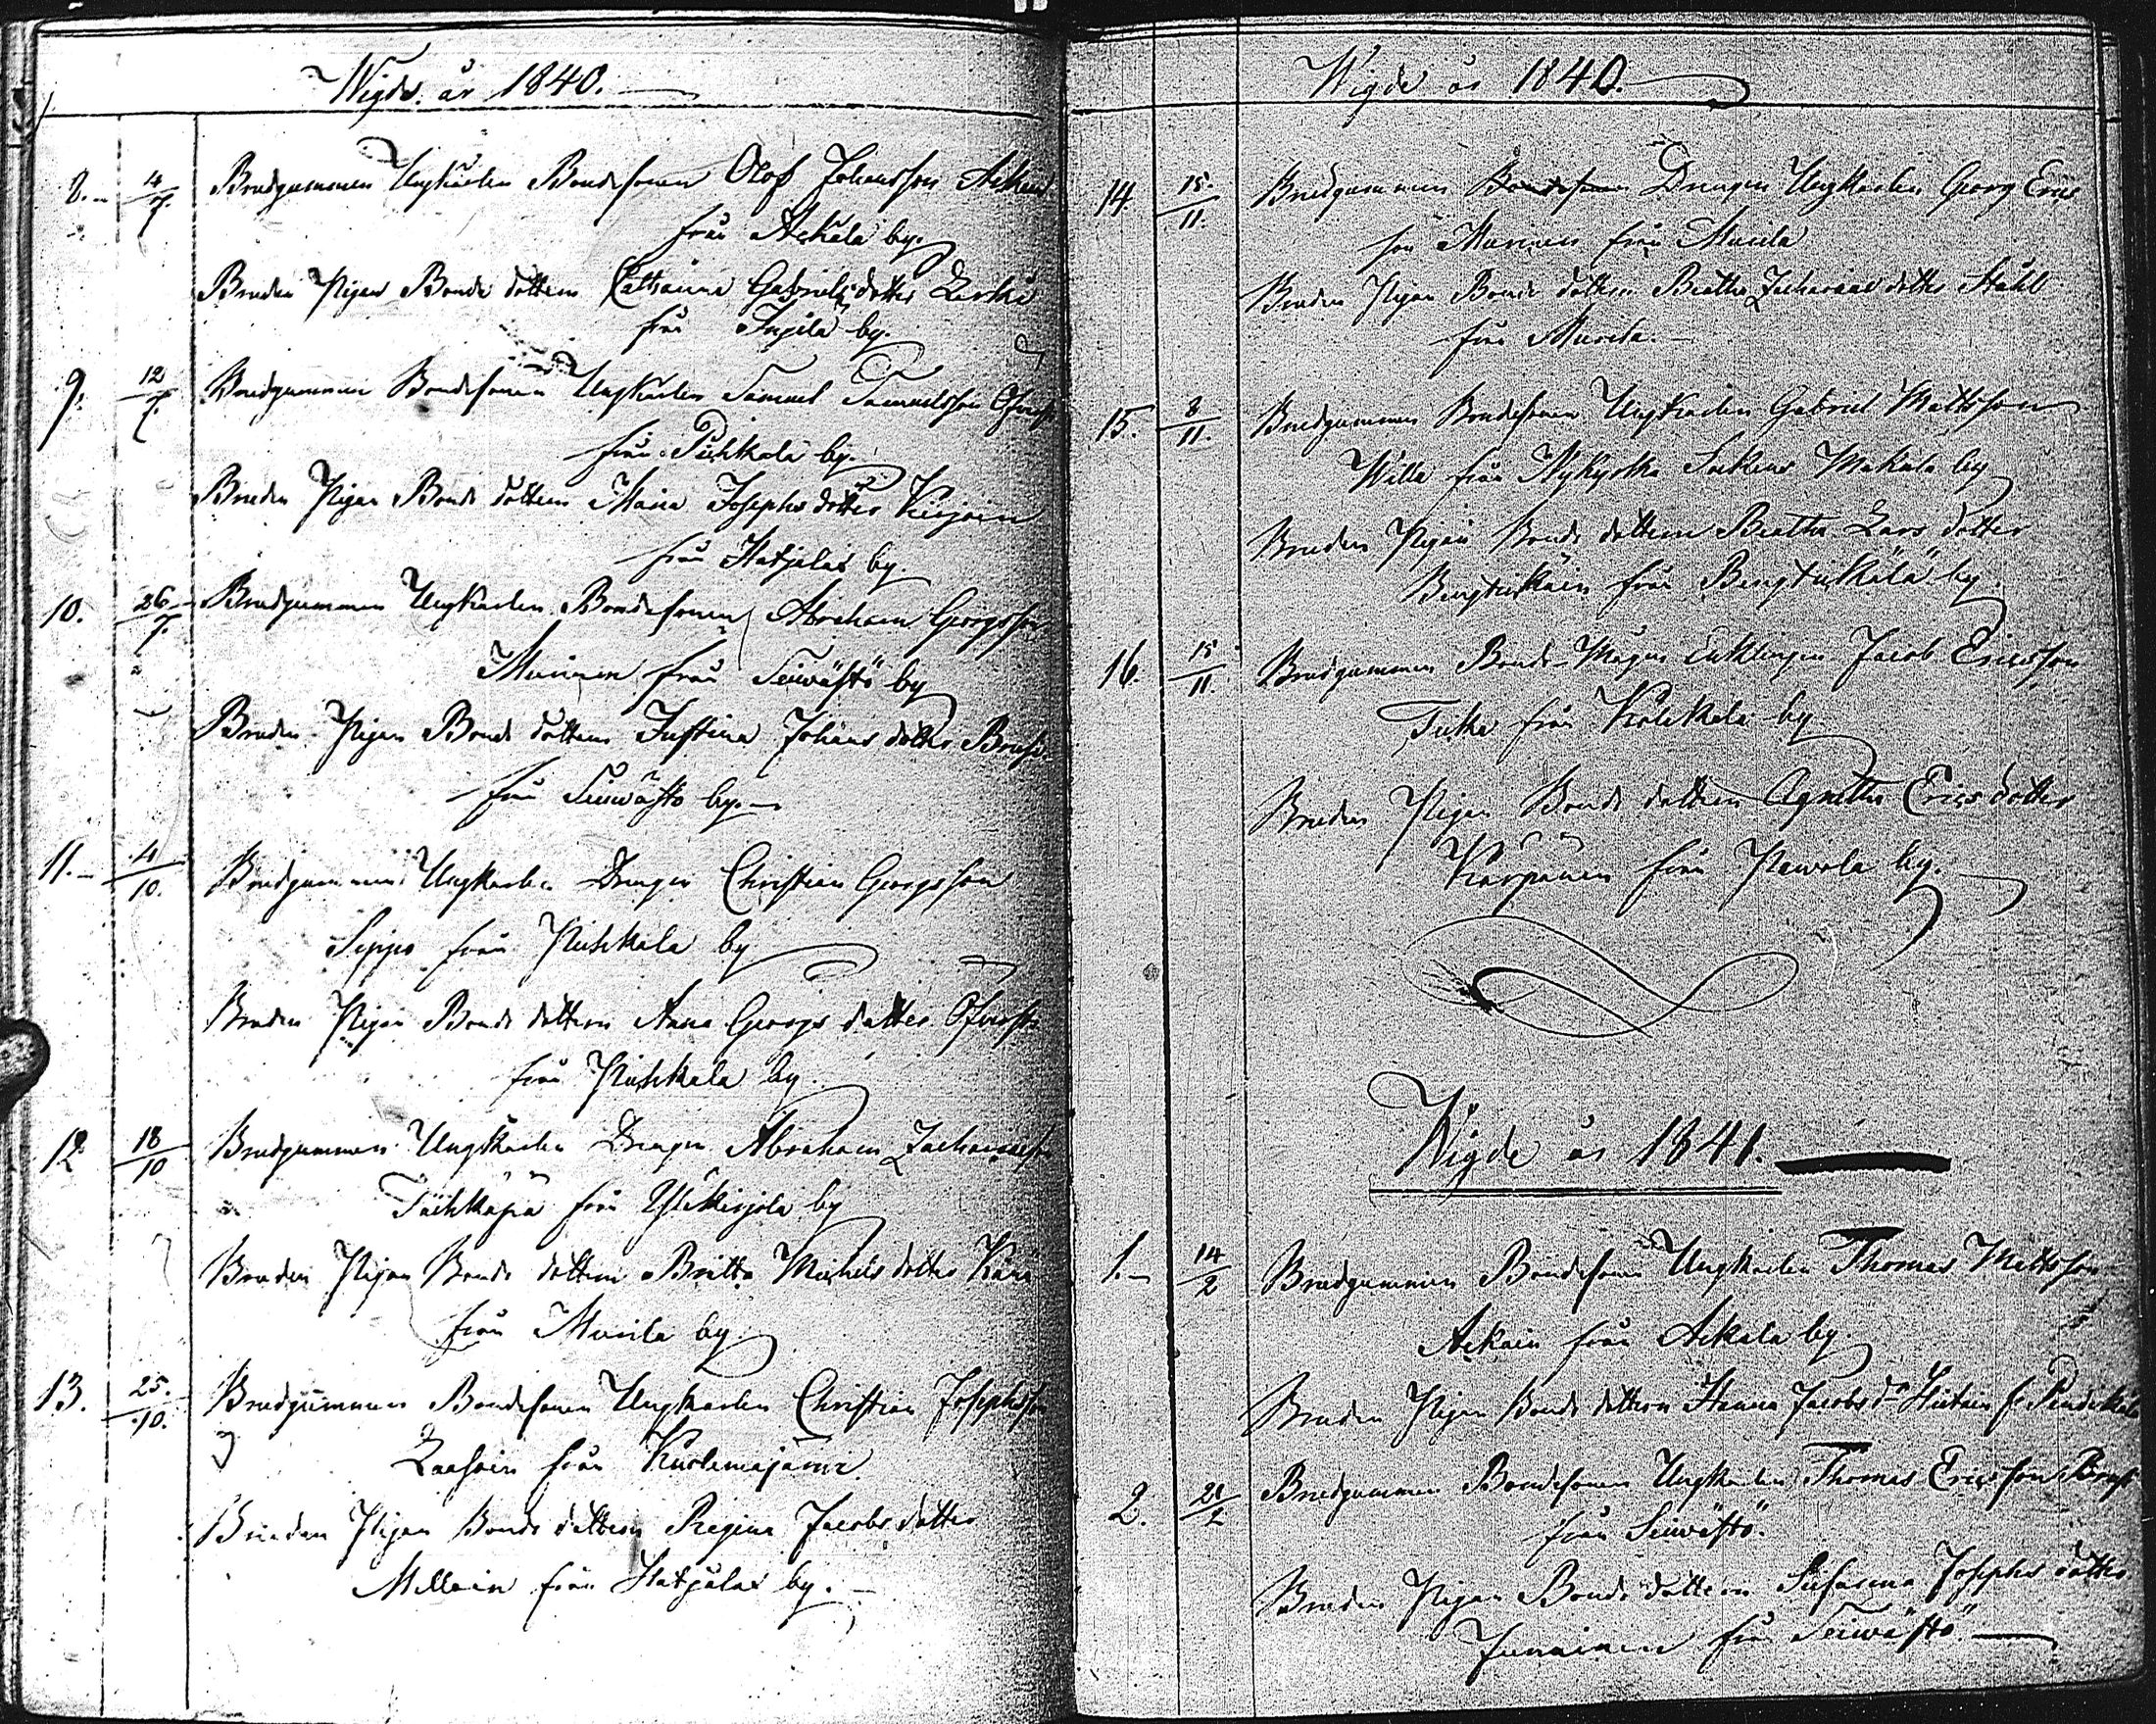 Wigde år 1840.
8. 4/7. Brudgummen Ungkarlen Bondesonen Olof Johansson
från Ackala by.
Bruden Pigan Bonde dottern Catharina Gabriels dotter
från Injila by.
9. 12/7. Brudgummen Bondesonen Ungkarlen Samuel Samuelsson
från Puhkala by.
Bruden Pigan Bonde dottern Maria Josephs dotter
från Hatjalax by.
10. 26/7. Brudgummen Ungkarlen Bondesonen Abraham Georgsson
Muurinen från Seiwästö by
Bruden Pigan Bonde dottern Justina Johans dotter
från Seiwästö by.
11. 4/10. Brudgummen Ungkarlen Drengen Christian Georgsson
Seppo från Puhkala by
Bruden Pigan Bonde dottern Anna Georgs dotter
från Puhkala by.
12 18/10 Brudgummen Ungkarlen Drengen Abraham Zachariasson
från by
Bruden Pigan Bonde dottern Britta Michels dotter
från Murila by
13. 25./10. Brudgummen Bondesonen Ungkarlen Christian Josephsson
från Kuolemajärvi
Bruden Pigan Bonde dottern Regina Jacobs dotter
från Hatjalax by.
Wigde år 1840.
14 15./11. Brudgummen Bondesonen Drengen Ungkarlen Georg Erics
son från Murila
Bruden Pigan Bonde dottern Beatha Zacharias dotter Ståhl
från Murila.
15. 8/11. Brudgummen Bondesonen Ungkarlen Gabriel Mattsson
Willa från Nykyrka Sokens by
Bruden Pigan Bonde dottern Beatha Lars dotter
från by
16. 15/11. Brudgummen Bonde Mågen Enklingen Jacob Ericsson
från Kolckala by
Bruden Pigan Bonde dottern Agnetha Erics dotter
Karpanen från Pawola by.
Wigde år 1841.
1. 14/2 Brudgummen Bondesonen Ungkarlen Thomas Mattsson
Ackain från Ackala by.
Bruden Pigan Bonde dottern Hanna Jacobs dr
2. 21/2 Brudgummen Bondesonen Ungkarlen Thomas Ericsson
från Seiwästö.
Bruden Pigan Bonde dottern Susanna Josephs dotter
från Seiwästö.